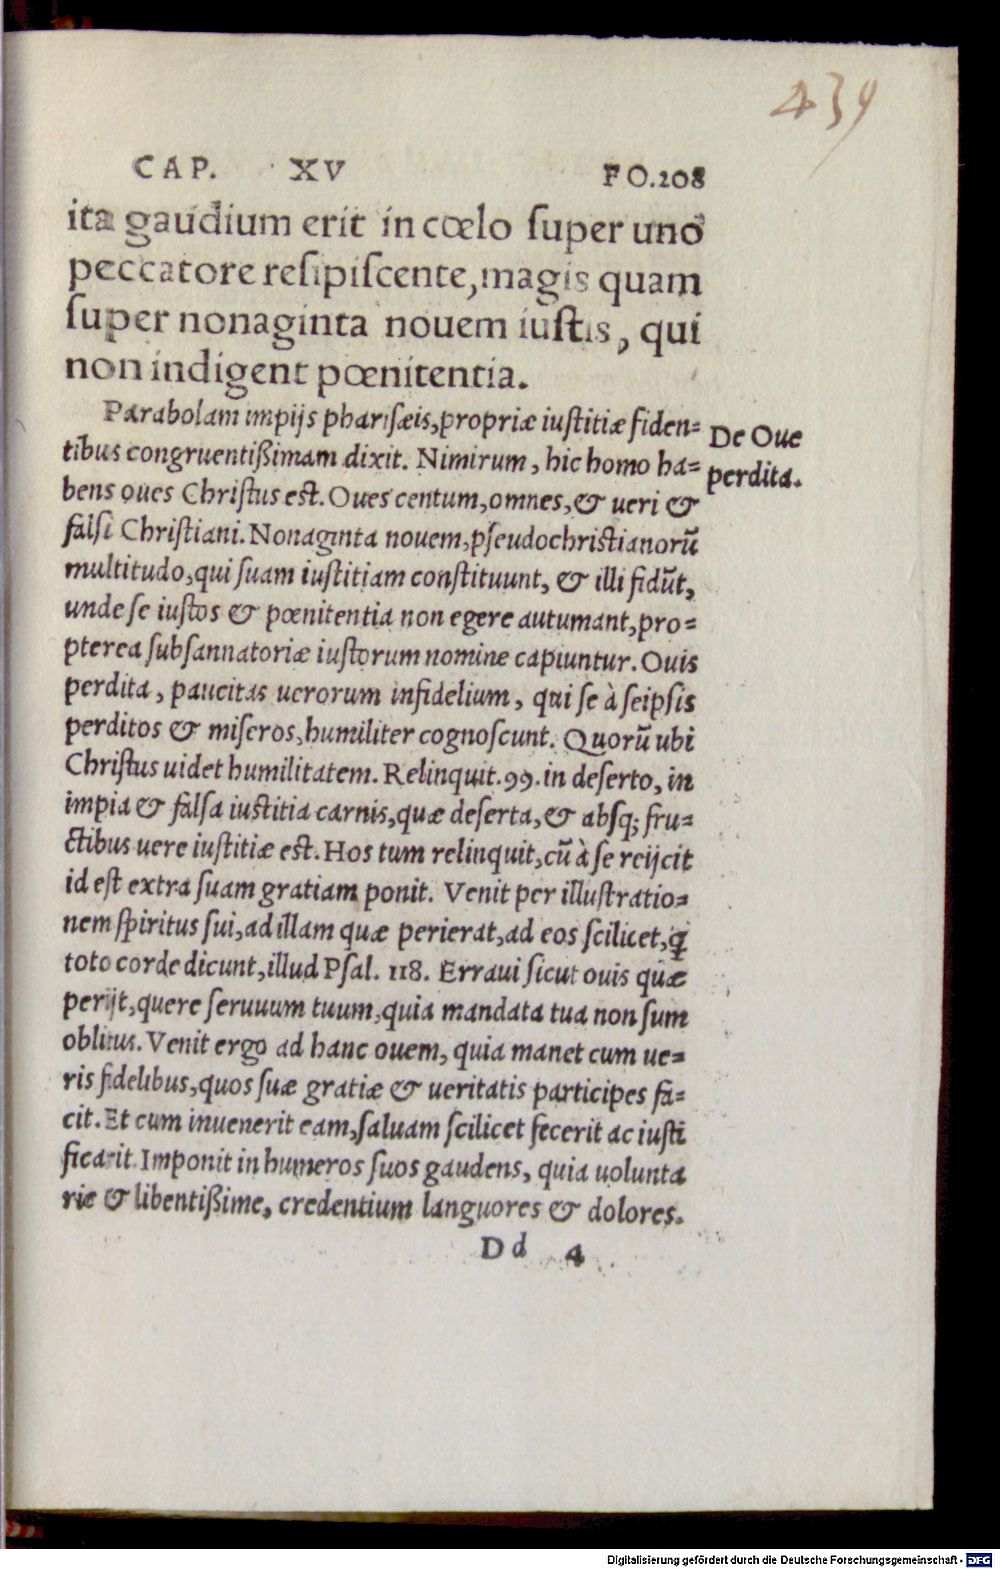 439
CAP. XV FO.208
ita gaudium erit in cœlo ſuper uno
peccatore reſipiſcente, magis quam
ſuper nonaginta nouem iuſtis, qui
non indigent pœnitentia.
Parabolam impijs phariſæis, propriæ iuſtitiæ fiden=
tibus congruentißimam dixit. Nimirum, hic homo ha=
bens oues Chriſtus eſt. Oues centum, omnes, & ueri &
falſi Chriſtiani. Nonaginta nouem, pſeudochriſtianorū
multitudo, qui ſuam iuſtitiam conſtituunt, & illi fidūt,
unde ſe iuſtos & pœnitentia non egere autumant, pro=
pterea ſubſannatoriæ iuſtorum nomine capiuntur. Ouis
perdita, paucitas uerorum infidelium, qui ſe à ſeipſis
perditos & miſeros, humiliter cognoſcunt. Quorū ubi
Chriſtus uidet humilitatem. Relinquit .99. in deſerto, in
impia & falſa iuſtitia carnis, quæ deſerta, & abſq; fru=
ctibus uere iuſtitiæ eſt. Hos tum relinquit, cū à ſe reijcit
id eſt extra ſuam gratiam ponit. Venit per illuſtratio=
nem ſpiritus ſui, ad illam quæ perierat, ad eos ſcilicet, q̄
toto corde dicunt, illud Pſal. 118. Erraui ſicut ouis quæ
perijt, quere ſeruuum tuum, quia mandata tua non ſum
oblitus. Venit ergo ad hanc ouem, quia manet cum ue=
ris fidelibus, quos ſuæ gratiæ & ueritatis participes fa=
cit. Et cum inuenerit eam, ſaluam ſcilicet fecerit ac iuſti
ficarit. Imponit in humeros ſuos gaudens, quia uolunta
rie & libentißime, credentium languores & dolores.
De Oue
perdita.
Dd 4
Digitalisierung gefördert durch die Deutsche Forschungsgemeinschaft - DFG